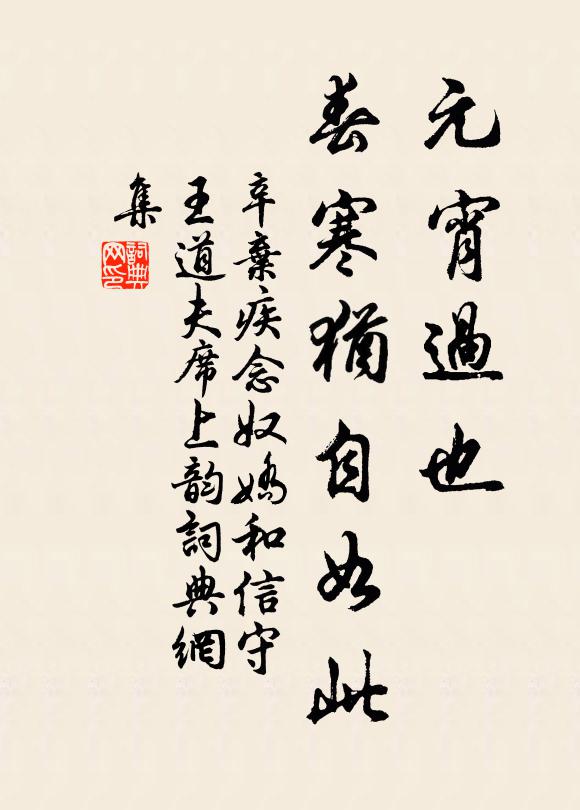 元宵過也
春寒猶自如此
辛棄疾念奴嬌和信守
王道夫席上韵詞典網
集
詞典
网印